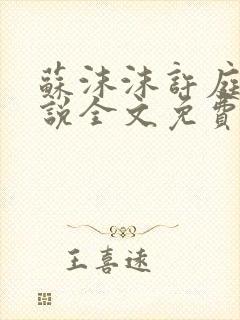 蘇沫沫許庭
說全文免費
王喜遠